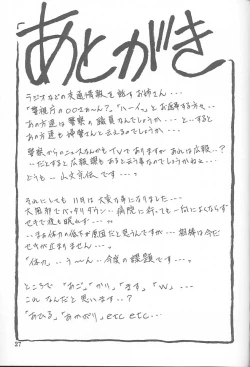 あとがき
ラジオなどの交通情報を話すお姉さん・・・
「警視庁の○○さ〜ん?」「ハーイッ」とお返事する方々・・
あの方達は警察の職員なんでしょうか・・・とすると
あの方達も婦警さんと云えるのでしょうか・・・
警察からのニュースなんかもTVでありますが あれは広報・・?
・・だとすると広報課もあると云う事なのでしょうかねェ・・・
どうも・・・
それにしても 11月は大変な事になりました・・・
大風邪でバッタリダウン・・病院に行っても一向によくならず
せきで夜も眠れず・・・
・・まぁ体力の低下が原因だと思うんですが・・・
せきが止まりません・・・。
「体力・・う〜ん・・今度の課題です・・・。
ところで「あご」「かり」「ます」「W」・・・
これなんだと思います・・?
「あひる」「あかがり」etc etc・・・
27